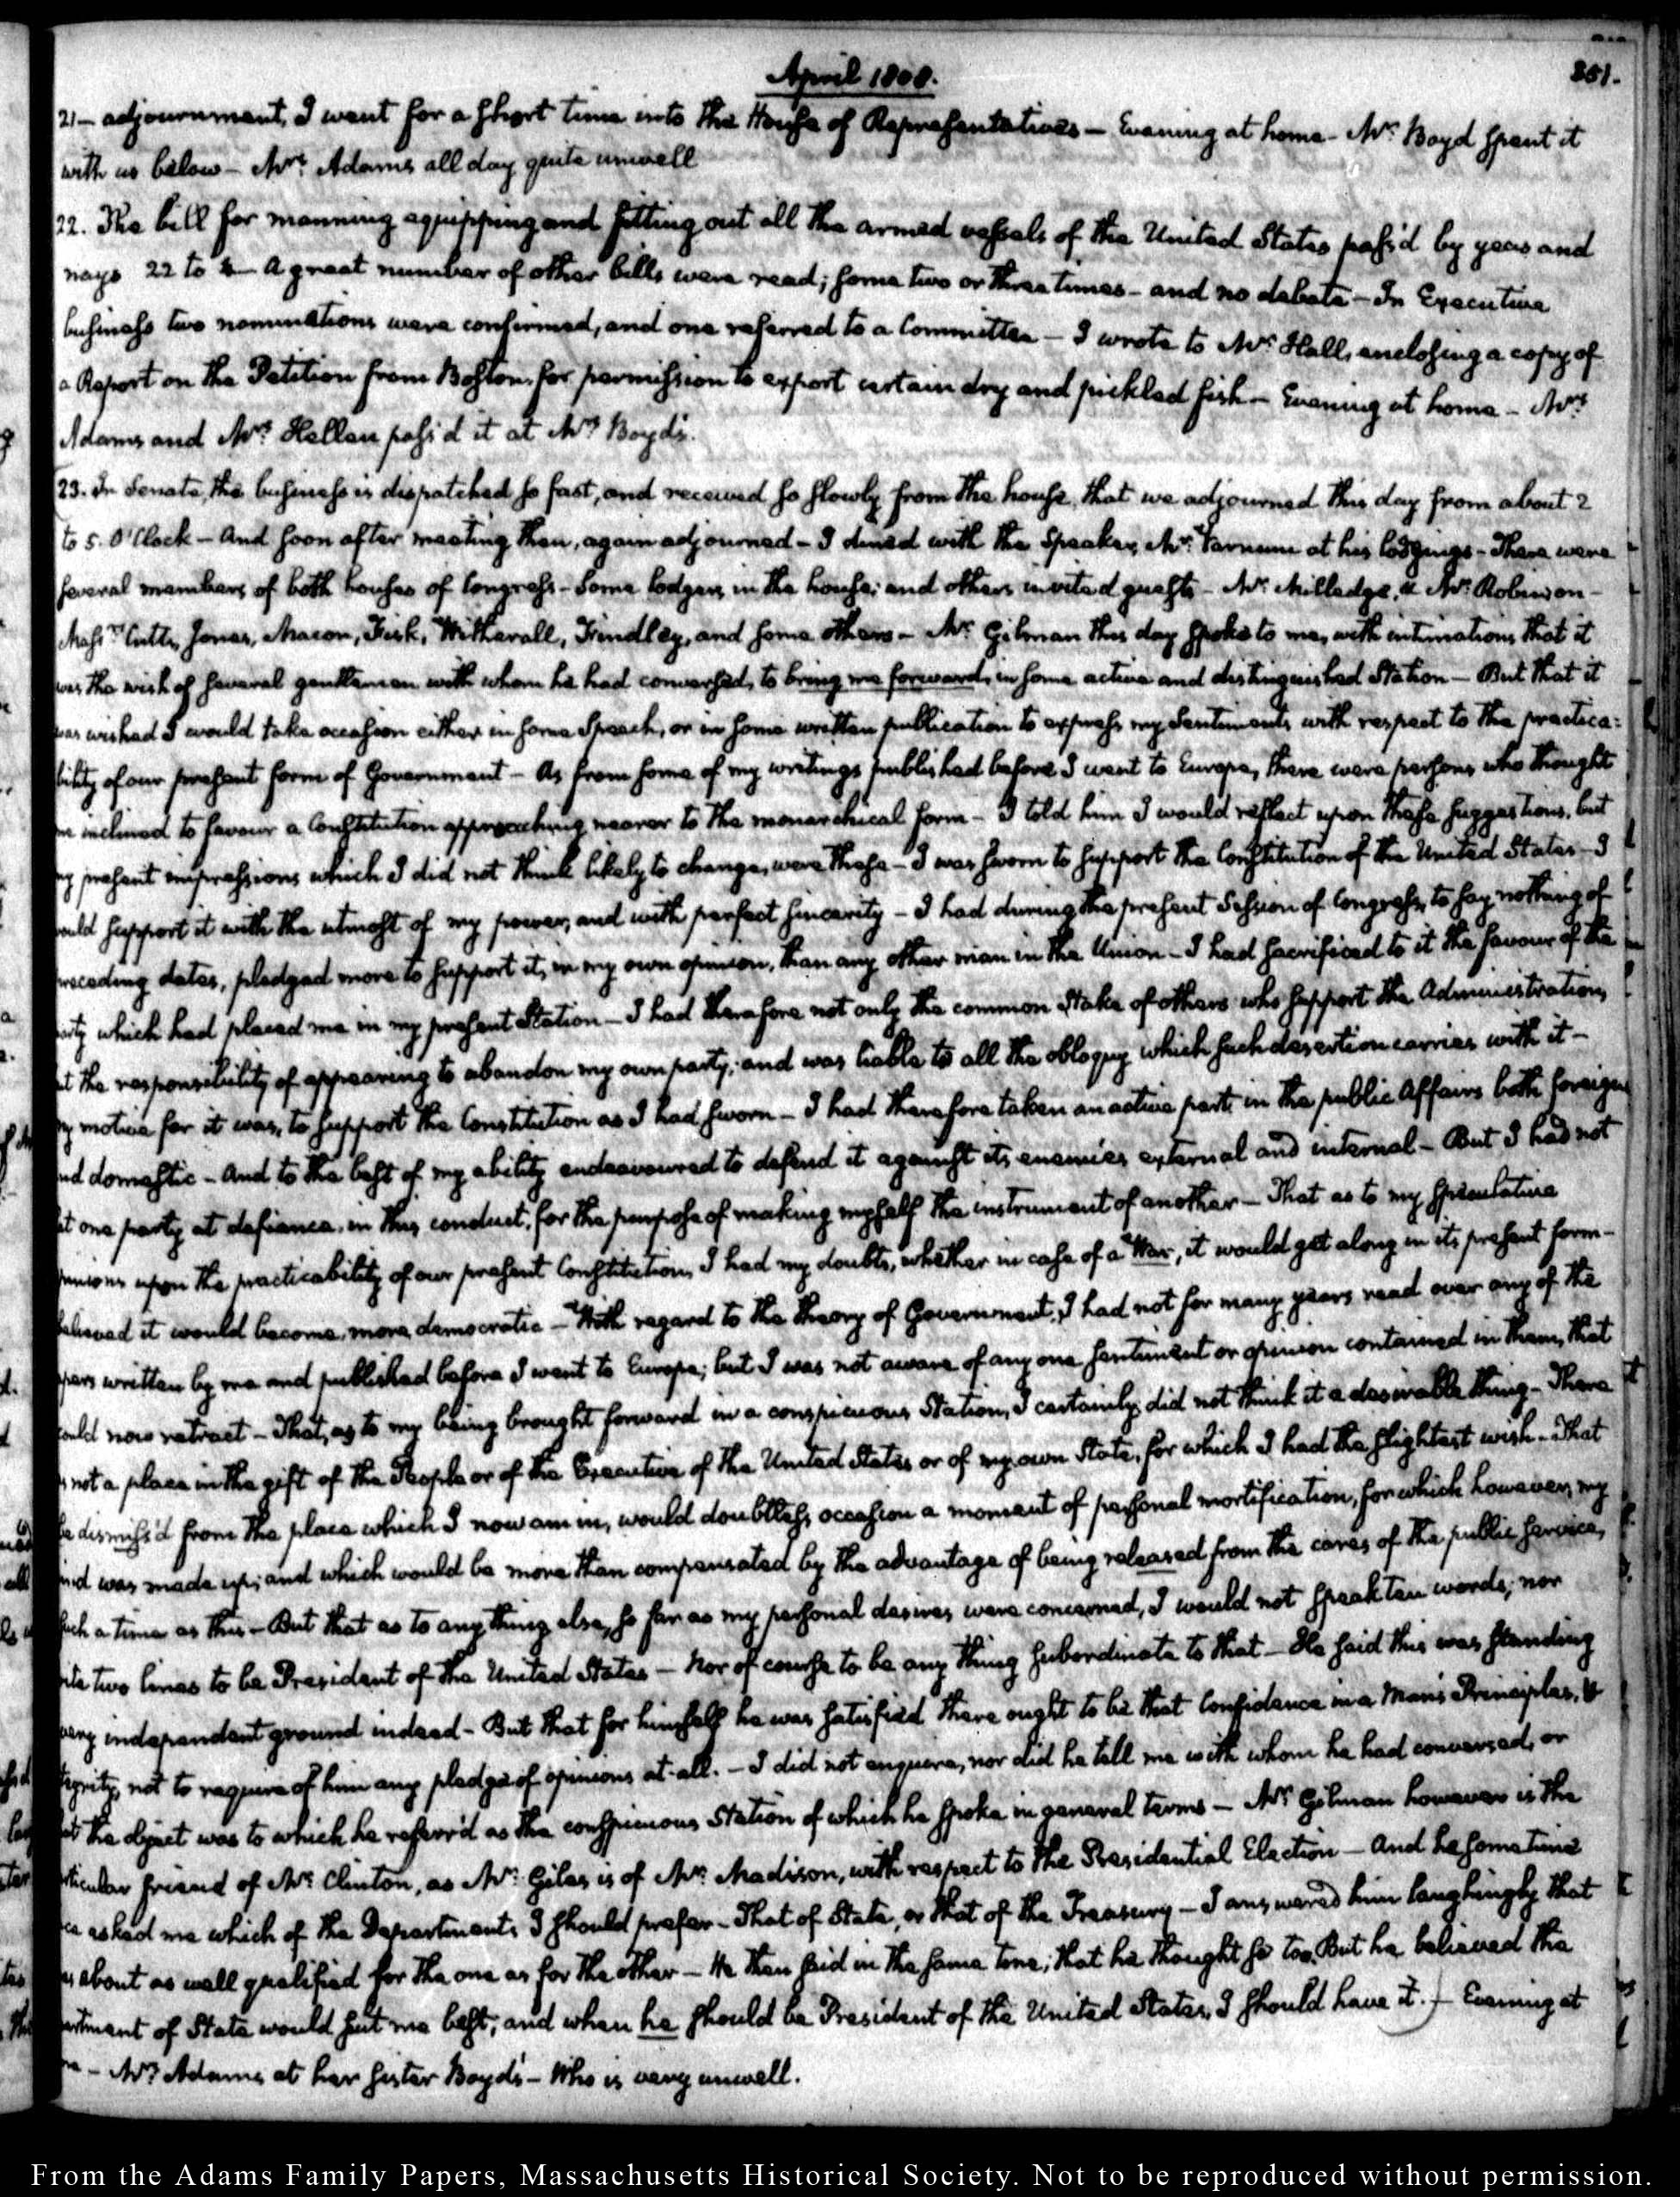 April 1808.
351.
21— adjournment, I went for a short time into the House of Representatives — Evening at home — Mr: Boyd spent it
with us below — Mrs: Adams all day quite unwell
22. The bill for manning equipping and fitting out all the armed vessels of the United States pass'd by yeas and
nays 22 to 4— A great number of other bills were read; some two or three times — and no debate — In Executive
business two nominations were confirmed, and one referred to a Committee — I wrote to Mr: Hall, enclosing a copy of
a Report on the Petition from Boston, for permission to export certain dry and pickled fish — Evening at home — Mrs:
Adams and Mrs: Hellen pass'd it at Mrs: Boyd's.
23. In Senate, the business is dispatched so fast, and received so slowly from the house, that we adjourned this day from about 2
to 5. O'Clock — And soon after meeting then, again adjourned — I dined with the Speaker, Mr: Varnum at his lodgings — There were
several members of both houses of Congress — Some lodgers in the house; and others invited guests — Mr: Milledge, & Mr: Robinson —
Messrs: Cutts, Jones, Macon, Fisk, Witherall, Findley, and some others — Mr: Gilman this day spoke to me, with intimations that it
was the wish of several gentlemen with whom he had conversed, to bring me forward, in some active and distinguished Station — But that it
was wished I would take occasion either in some Speech, or in some written publication to express my Sentiments with respect to the practica:
bility of our present form of Government — As from some of my writings published before I went to Europe, there were persons who thought
me inclined to favour a Constitution approaching nearer to the monarchical form — I told him I would reflect upon these suggestions, but
my present impressions which I did not think likely to change, were these — I was sworn to support the Constitution of the United States — I
would support it with the utmost of my power, and with perfect sincerity — I had during the present Session of Congress, to say nothing of
preceding dates, pledged more to support it, in my own opinion, than any other man in the Union — I had sacrificed to it the favour of the
party which had placed me in my present Station — I had therefore not only the common stake of others who support the Administration,
but the responsibility of appearing to abandon my own party; and was liable to all the obloquy which such desertion carries with it —
my motive for it was, to support the Constitution as I had sworn — I had therefore taken an active part in the public Affairs both foreign
and domestic — And to the best of my ability endeavoured to defend it against its enemies external and internal — But I had not
set one party at defiance, in this conduct, for the purpose of making myself the instrument of another — That as to my speculative
opinions upon the practicability of our present Constitution, I had my doubts, whether in case of a War, it would get along in its present form —
believed it would become, more democratic — With regard to the theory of Government, I had not for many years read over any of the
papers written by me and published before I went to Europe; but I was not aware of any one sentiment or opinion contained in them, that
could now retract — That, as to my being brought forward in a conspicuous Station, I certainly did not think it a desirable thing — There
is not a place in the gift of the People or of the Executive of the United States or of my own State, for which I had the slightest wish — That
be dismiss'd from the place which I now am in, would doubtless, occasion a moment of personal mortification, for which however, my
mind was made up; and which would be more than compensated by the advantage of being released from the cares of the public service,
such a time as this — But that as to any thing else, so far as my personal desires were concerned, I would not speak ten words, nor
write two lines to be President of the United States — Nor of course to be any thing subordinate to that — He said this was standing
very independent ground indeed — But that for himself he was satisfied there ought to be that Confidence in a Man's Principles, &
tegrity, not to require of him any pledge of opinions at all. — I did not enquire, nor did he tell me with whom he had conversed, or
what the object was to which he referr'd as the conspicuous Station of which he spoke in general terms — Mr: Gilman however is the
particular friend of Mr: Clinton, as Mr: Giles is of Mr: Madison, with respect to the Presidential Election — And he sometime
since asked me which of the Departments I should prefer — That of State, or that of the Treasury — I answered him laughingly that
was about as well qualified for the one as for the other — He then said in the same tone, that he thought so too, But he believed the
Department of State would suit me best; and when he should be President of the United States, I should have it. — Evening at
home — Mrs: Adams at her sister Boyd's — Who is very unwell.
From the Adams Family Papers, Massachusetts Historical Society. Not to be reproduced without permission.